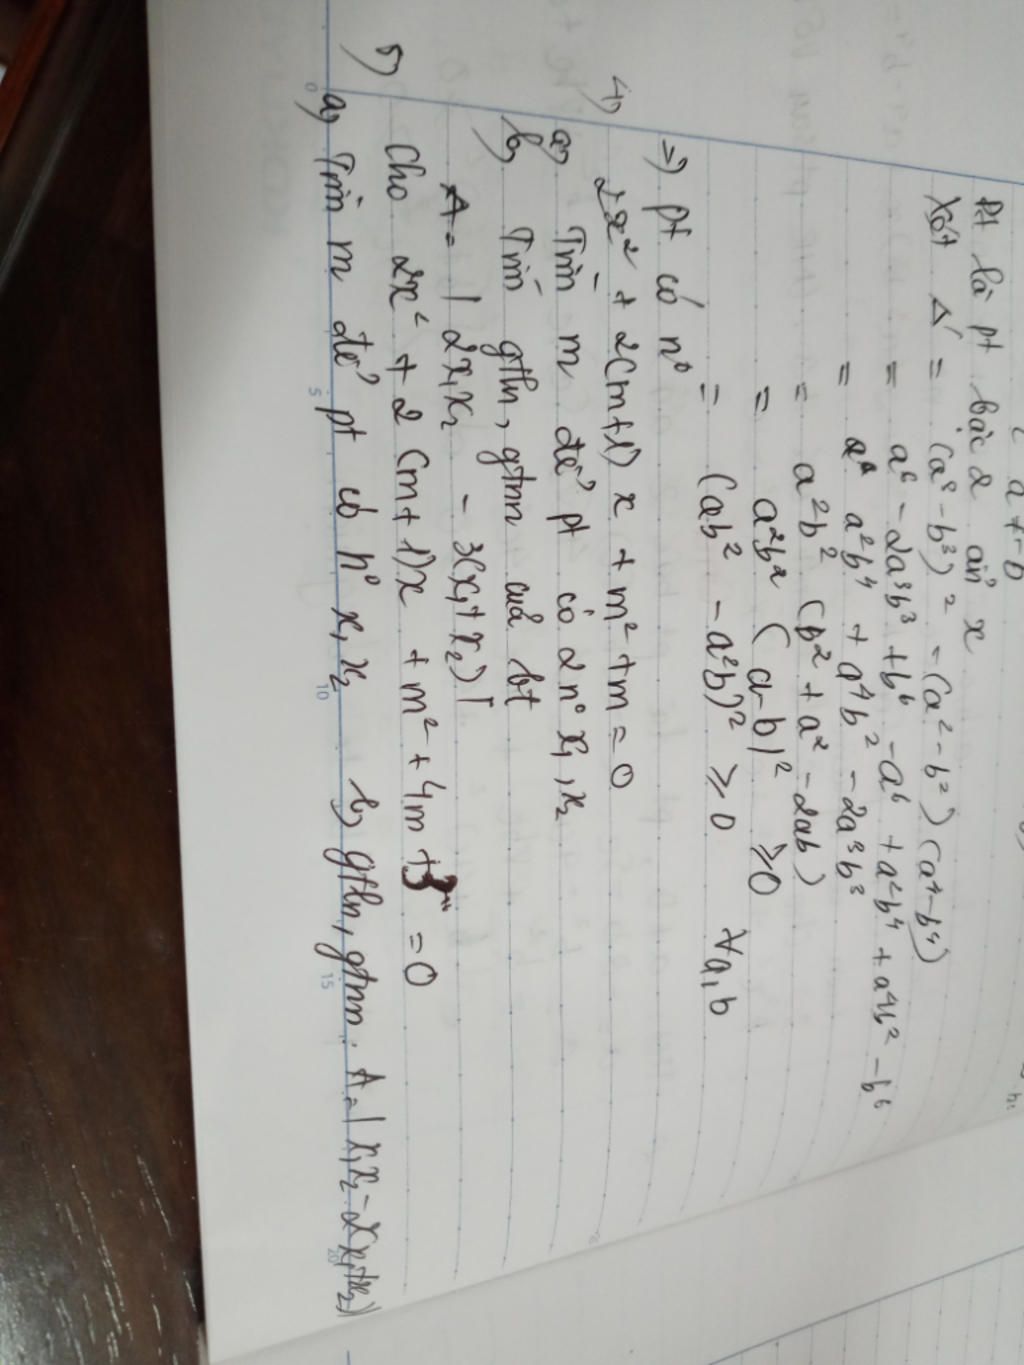 a ≠ -b
Pt là pt bậc 2 ẩn x
Xét Δ' = (a³ - b³)² - (a² - b²)(a⁴ - b⁴)
= a⁶ - 2a³b³ + b⁶ - a⁶ + a²b⁴ + a⁴b² - b⁶
= a²b⁴ + a⁴b² - 2a³b³
= a²b² (b² + a² - 2ab)
= a²b² (a - b)² ≥ 0
= (ab² - a²b)² ≥ 0 ∀a,b
=> pt có n⁰
4)
2x² + 2(m+1)x + m² + m = 0
a) Tìm m để pt có 2 n⁰ x₁, x₂
b) Tìm gtln, gtnn của bt
A = | 2x₁x₂ - 3(x₁ + x₂) |
5) Cho 2x² + 2(m+1)x + m² + 4m + 3 = 0
a) Tìm m để pt có n⁰ x₁ x₂ b) gtln, gtnn. A = | x₁x₂ - 2(x₁+x₂) |